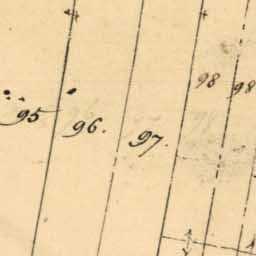 95
96.
97.
98
98